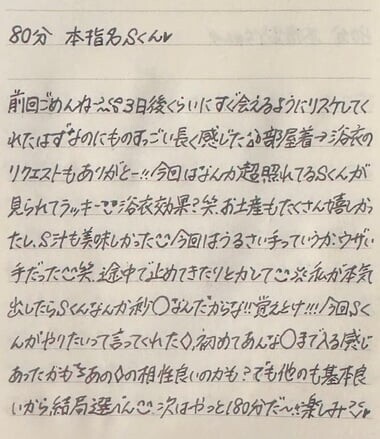 80分 本指名Sくん♥
前回ごめんね 3日後くらいにすぐ会えるようにリスケしてく
れたはずなのにものすっごい長く感じた 部屋着→浴衣の
リクエストもありがとー!!!今回はなんか超照れてるSくんが
見られてラッキー 浴衣効果?笑 お土産もたくさん嬉しかっ
たし、S汁も美味しかった 今回はうるさい手っていうかウザい
手だった 笑 途中で止めてきたりとかして 私が本気
出したらSくんなんか秒○なんだからな!!覚えとけ!!!今回Sく
んがやりたいって言ってくれた◇、初めてあんな○まで入る感じ
あったかも あの◇の相性良いのかも?でも他のも基本良
いから、結局選べん 次はやっと180分だ〜 楽しみ